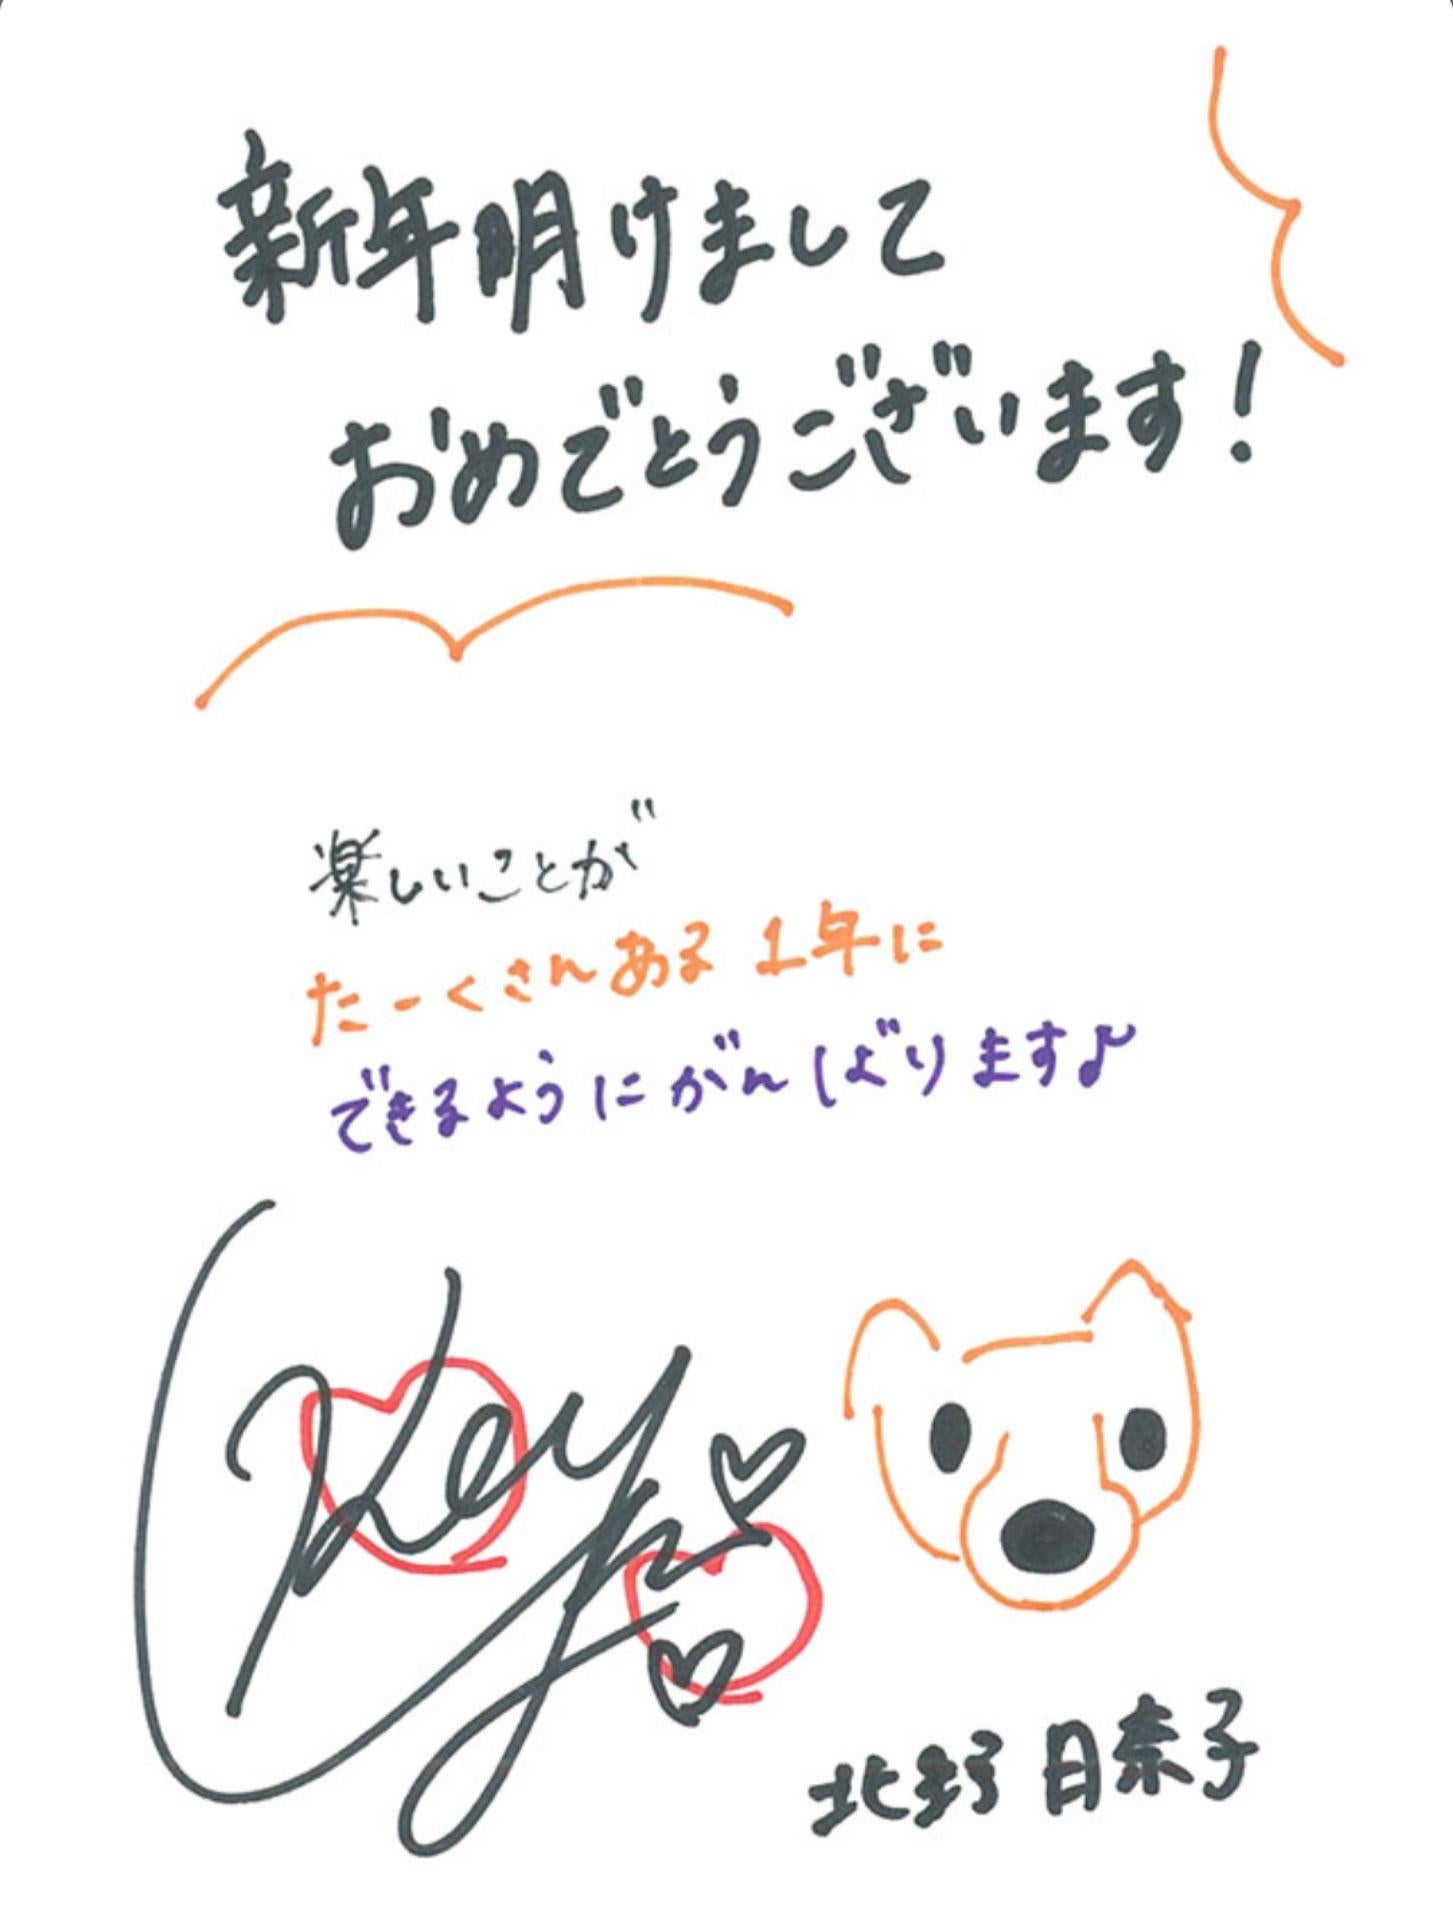 新年明けまして
おめでとうございます!
楽しいことが
たーくさんある1年に
できるようにがんばります♪
北野日奈子